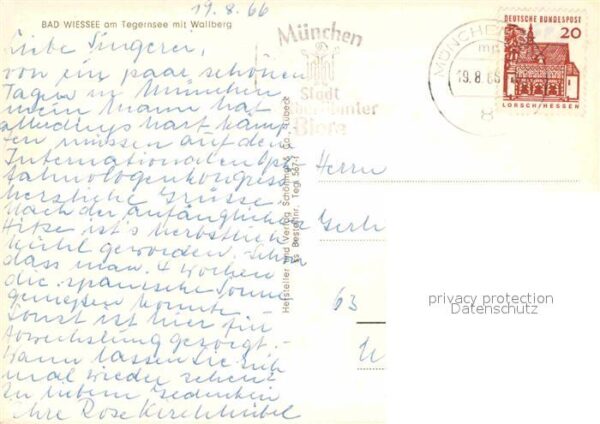 19.8.66
BAD WIESSEE am Tegernsee mit Wallberg
Liebe Singerei,
von ein paar schönen
Tagen in München
mein Mann hat
allerdings hart kämp-
fen müssen auf dem
Internationalen Oph-
talmologenkongress
herzliche Grüsse.
Nach der anfänglichen
Hitze ist's herbstlich
kühl geworden. Schön
dass man 4 Wochen
die spanische Sonne
geniessen konnte.
Sonst ist hier für
Abwechslung gesorgt.-
Wann lassen Sie sich
mal wieder sehen?
In liebem Gedenken
ihre Rose
Hersteller und Verlag Schöning & Co., Lübeck
Bestellnr. Tegi 567
München
Stadt
berühmter
Biere
MÜNCHEN
mp
19.8.66
8
DEUTSCHE BUNDESPOST
20
LORSCH/HESSEN
Herrn
Gerh
63
U
privacy protection
Datenschutz